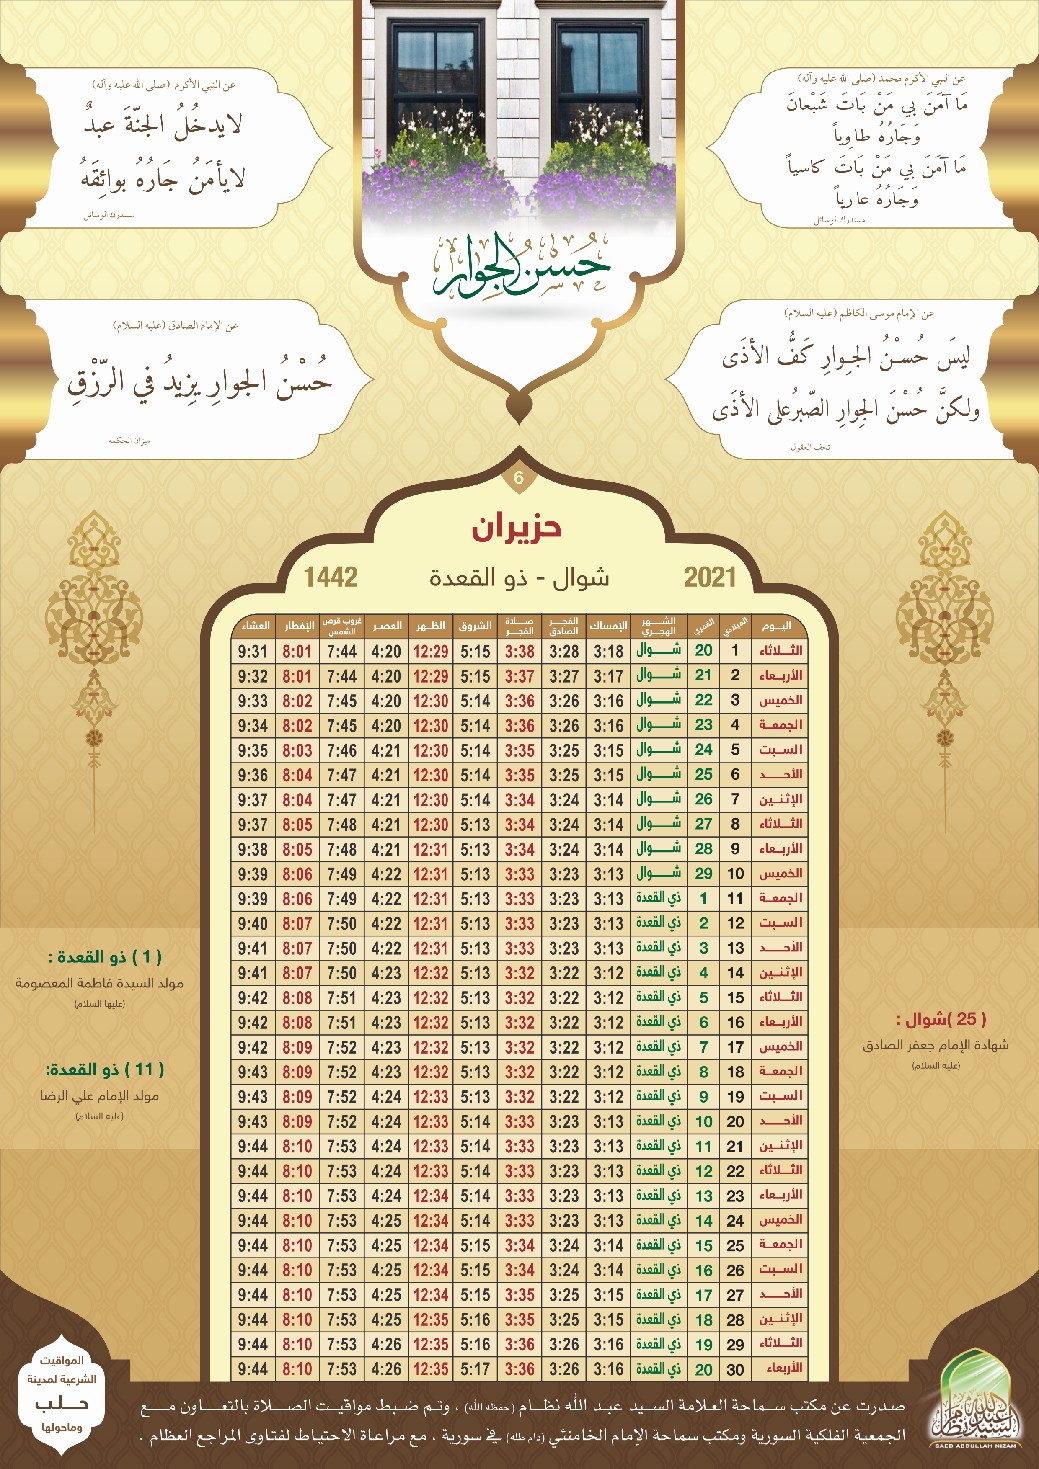 عن النبي الأكرم محمد (صلى الله عليه وآله)
مَا آمَنَ بِي مَنْ بَاتَ شَبْعانَ
وَجَارُهُ طاوِياً
مَا آمَنَ بِي مَنْ بَاتَ كاسياً
وَجَارُهُ عارِياً
مستدرك الوسائل
عن النبي الأكرم (صلى الله عليه وآله)
لايدخُلُ الجنّةَ عبدٌ
لايأمَنُ جَارُهُ بوائِقَهُ
مستدرك الوسائل
حُسن الجوار
عن الإمام موسى الكاظم (عليه السلام)
ليسَ حُسْنُ الجِوارِ كَفُّ الأذَى
ولكنَّ حُسْنَ الجِوارِ الصّبرُ على الأذَى
تحف العقول
عن الإمام الصادق (عليه السلام)
حُسْنُ الجوارِ يزيدُ في الرّزْقِ
ميزان الحكمة
6
حزيران
2021 شوال - ذو القعدة 1442
اليوم الميلادي القمري الشهر الهجري الإمساك الفجر الصادق صلاة الفجر الشروق الظهر العصر غروب قرص الشمس الإفطار العشاء
الثلاثاء 1 20 شوال 3:18 3:28 3:38 5:15 12:29 4:20 7:44 8:01 9:31
الأربعاء 2 21 شوال 3:17 3:27 3:37 5:15 12:29 4:20 7:44 8:01 9:32
الخميس 3 22 شوال 3:16 3:26 3:36 5:14 12:30 4:20 7:45 8:02 9:33
الجمعة 4 23 شوال 3:16 3:26 3:36 5:14 12:30 4:20 7:45 8:02 9:34
السبت 5 24 شوال 3:15 3:25 3:35 5:14 12:30 4:21 7:46 8:03 9:35
الأحد 6 25 شوال 3:15 3:25 3:35 5:14 12:30 4:21 7:47 8:04 9:36
الإثنين 7 26 شوال 3:14 3:24 3:34 5:14 12:30 4:21 7:47 8:04 9:37
الثلاثاء 8 27 شوال 3:14 3:24 3:34 5:13 12:30 4:21 7:48 8:05 9:37
الأربعاء 9 28 شوال 3:14 3:24 3:34 5:13 12:31 4:21 7:48 8:05 9:38
الخميس 10 29 شوال 3:13 3:23 3:33 5:13 12:31 4:22 7:49 8:06 9:39
الجمعة 11 1 ذي القعدة 3:13 3:23 3:33 5:13 12:31 4:22 7:49 8:06 9:39
السبت 12 2 ذي القعدة 3:13 3:23 3:33 5:13 12:31 4:22 7:50 8:07 9:40
الأحد 13 3 ذي القعدة 3:13 3:23 3:33 5:13 12:31 4:22 7:50 8:07 9:41
الإثنين 14 4 ذي القعدة 3:12 3:22 3:32 5:13 12:32 4:23 7:50 8:07 9:41
الثلاثاء 15 5 ذي القعدة 3:12 3:22 3:32 5:13 12:32 4:23 7:51 8:08 9:42
الأربعاء 16 6 ذي القعدة 3:12 3:22 3:32 5:13 12:32 4:23 7:51 8:08 9:42
الخميس 17 7 ذي القعدة 3:12 3:22 3:32 5:13 12:32 4:23 7:52 8:09 9:42
الجمعة 18 8 ذي القعدة 3:12 3:22 3:32 5:13 12:32 4:23 7:52 8:09 9:43
السبت 19 9 ذي القعدة 3:12 3:22 3:32 5:13 12:33 4:24 7:52 8:09 9:43
الأحد 20 10 ذي القعدة 3:13 3:23 3:33 5:14 12:33 4:24 7:52 8:09 9:43
الإثنين 21 11 ذي القعدة 3:13 3:23 3:33 5:14 12:33 4:24 7:53 8:10 9:44
الثلاثاء 22 12 ذي القعدة 3:13 3:23 3:33 5:14 12:33 4:24 7:53 8:10 9:44
الأربعاء 23 13 ذي القعدة 3:13 3:23 3:33 5:14 12:34 4:24 7:53 8:10 9:44
الخميس 24 14 ذي القعدة 3:13 3:23 3:33 5:14 12:34 4:25 7:53 8:10 9:44
الجمعة 25 15 ذي القعدة 3:14 3:24 3:34 5:15 12:34 4:25 7:53 8:10 9:44
السبت 26 16 ذي القعدة 3:14 3:24 3:34 5:15 12:34 4:25 7:53 8:10 9:44
الأحد 27 17 ذي القعدة 3:15 3:25 3:35 5:15 12:34 4:25 7:53 8:10 9:44
الإثنين 28 18 ذي القعدة 3:15 3:25 3:35 5:16 12:35 4:25 7:53 8:10 9:44
الثلاثاء 29 19 ذي القعدة 3:16 3:26 3:36 5:16 12:35 4:26 7:53 8:10 9:44
الأربعاء 30 20 ذي القعدة 3:16 3:26 3:36 5:17 12:35 4:26 7:53 8:10 9:44
( 25 )شوال :
شهادة الإمام جعفر الصادق
(عليه السلام)
( 1 ) ذو القعدة :
مولد السيدة فاطمة المعصومة
(عليها السلام)
( 11 ) ذو القعدة:
مولد الإمام علي الرضا
(عليه السلام)
صدرت عن مكتب سماحة العلامة السيد عبد الله نظام (حفظه الله) ، وتم ضبط مواقيت الصلاة بالتعاون مع
الجمعية الفلكية السورية ومكتب سماحة الإمام الخامنئي (دام ظله) في سورية ، مع مراعاة الاحتياط لفتاوى المراجع العظام .
المواقيت
الشرعية لمدينة
حلب
وماحولها
السيد عبد الله نظام
SAED ABDULLAH NIZAM